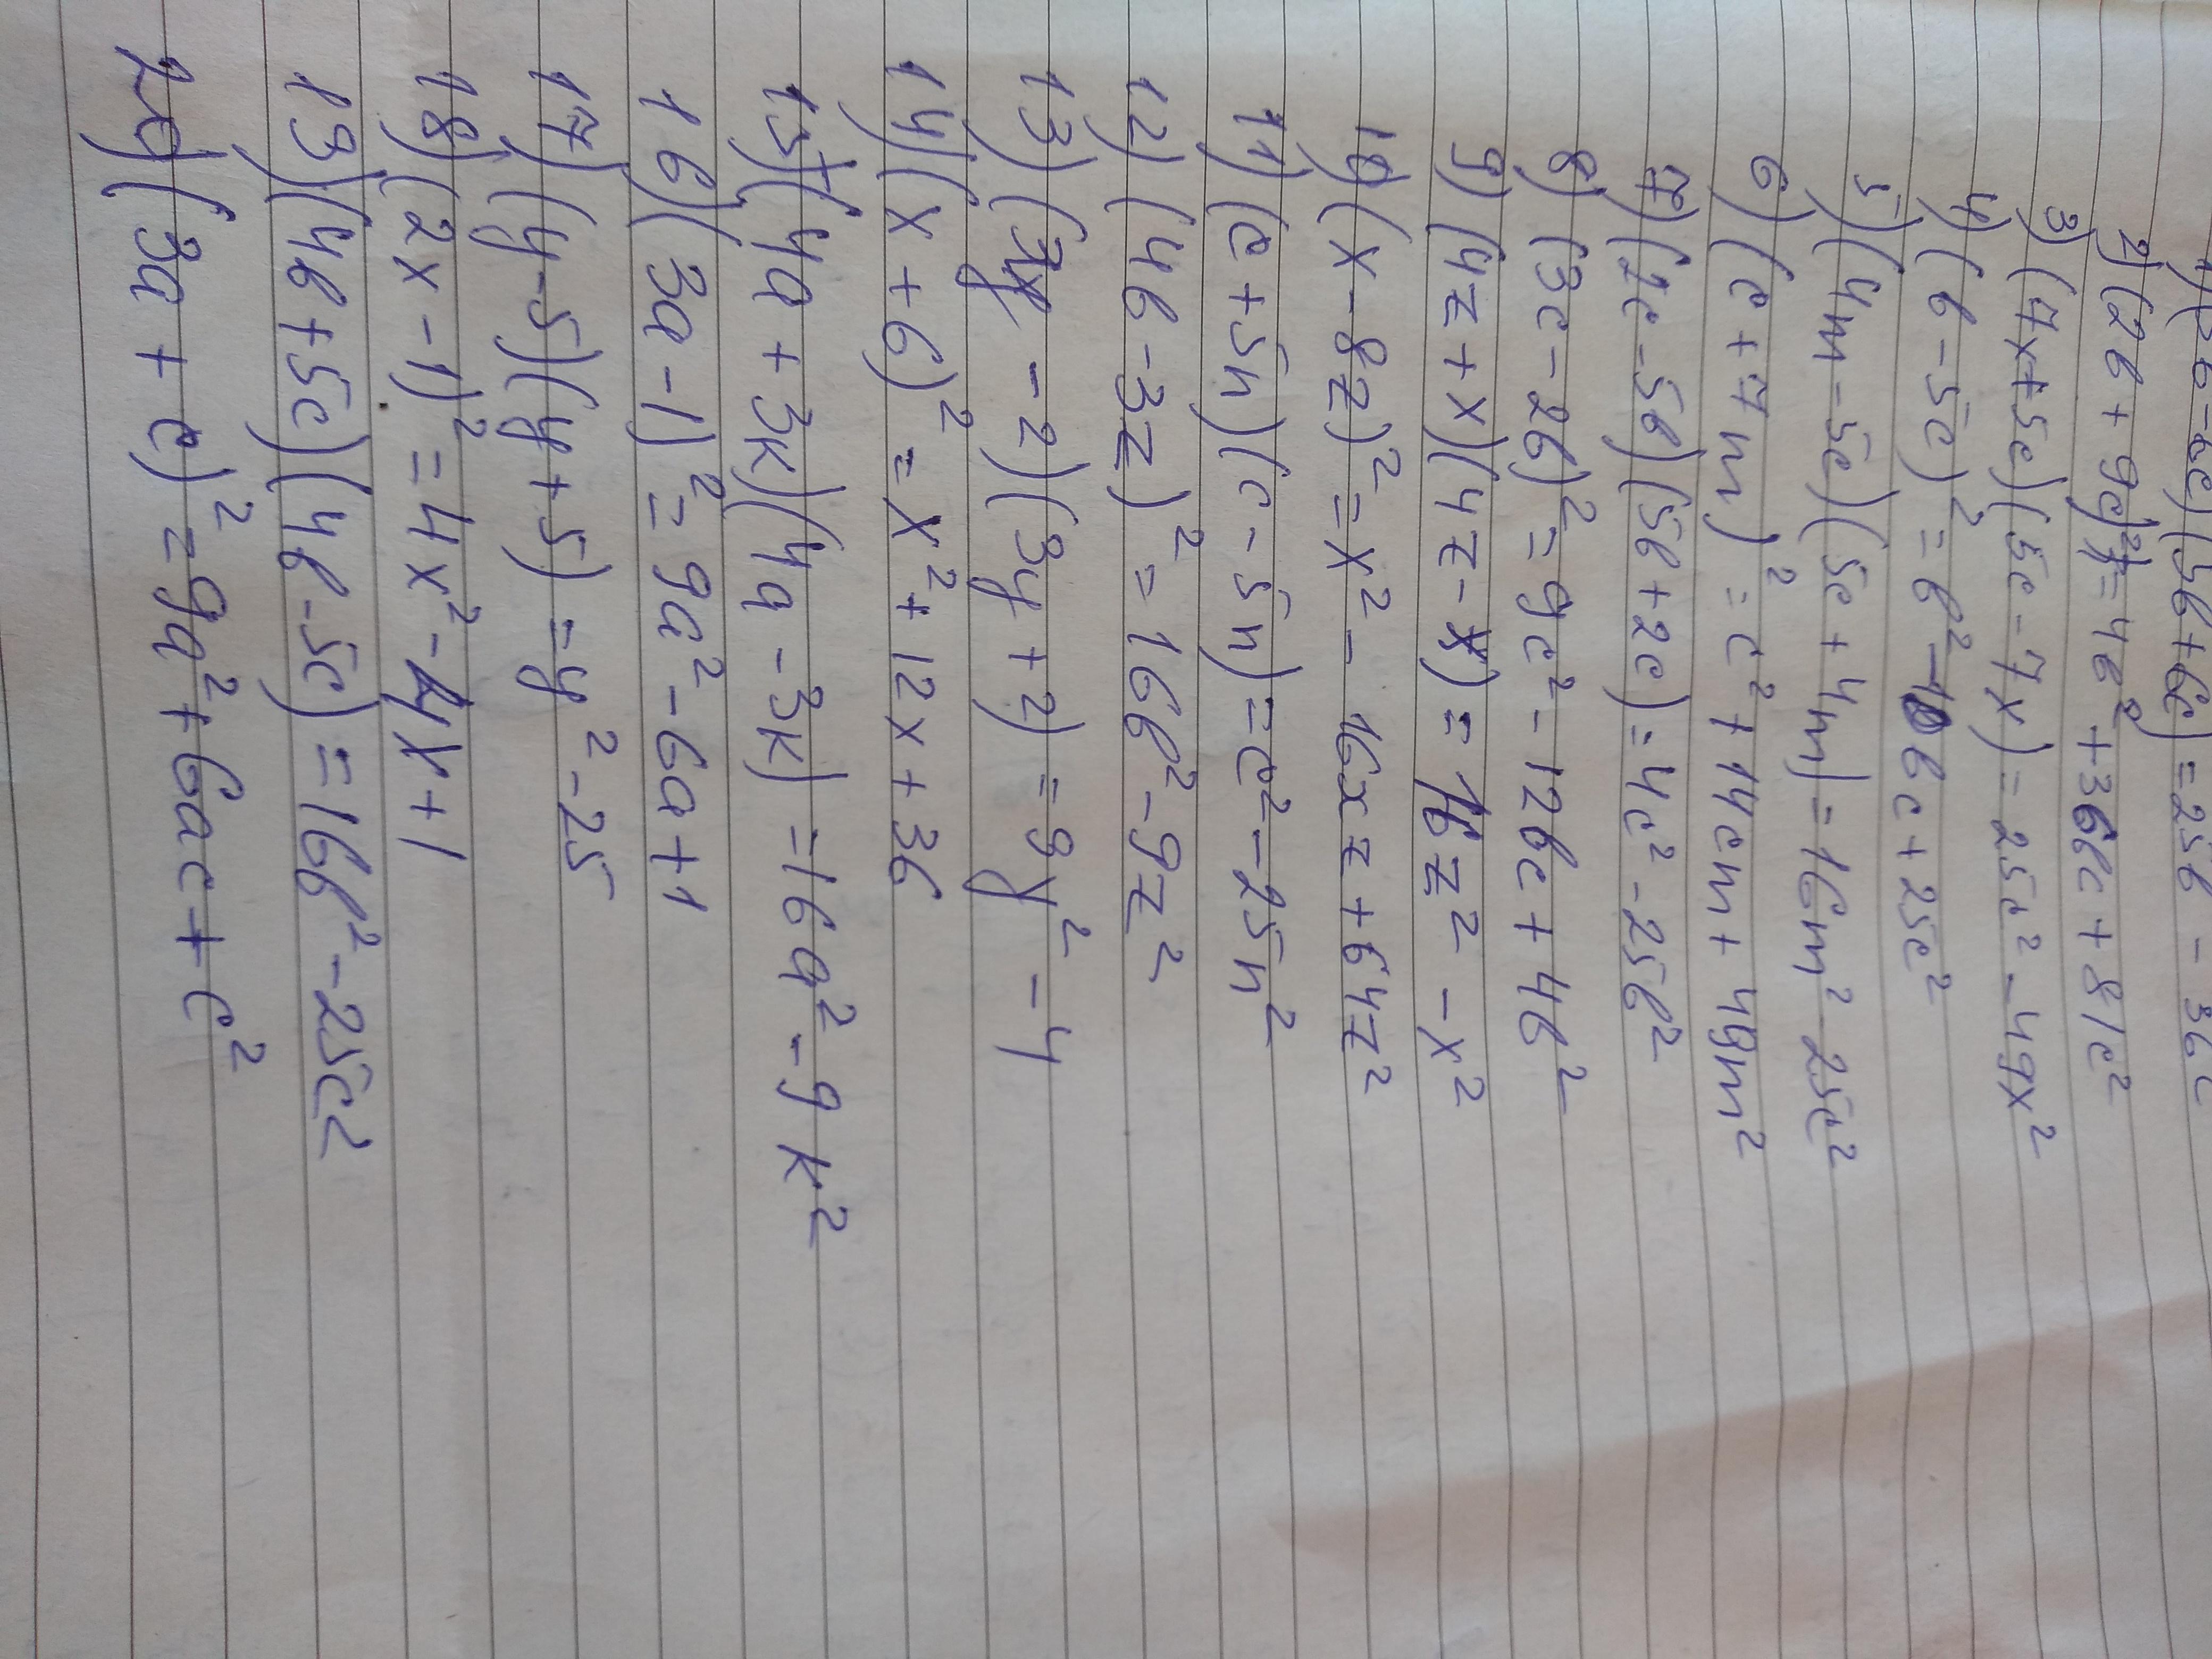 1) (5b-6c)(5b+6c)=25b - 36c
2) (2b+9c)²=4b²+36bc+81c²
3) (7x+5c)(5c-7x)=25c²-49x²
4) (b-5c)²=b²-10bc+25c²
5) (4m-5c)(5c+4m)=16m² 25c²
6) (c+7m)²=c²+14cm+49m²
7) (2c-5b)(5b+2c)=4c²-25b²
8) (3c-2b)²=9c²-12bc+4b²
9) (4z+x)(4z-x)=16z²-x²
10) (x-8z)²=x²-16xz+64z²
11) (c+5n)(c-5n)=c²-25n²
12) (4b-3z)²=16b²-9z²
13) (3y-2)(3y+2)=9y²-4
14) (x+6)²=x²+12x+36
15) (4a+3k)(4a-3k)=16a²-9k²
16) (3a-1)²=9a²-6a+1
17) (y-5)(y+5)=y²-25
18) (2x-1)²=4x²-4x+1
19) (4b+5c)(4b-5c)=16b²-25c²
20) (3a+c)²=9a²+6ac+c²